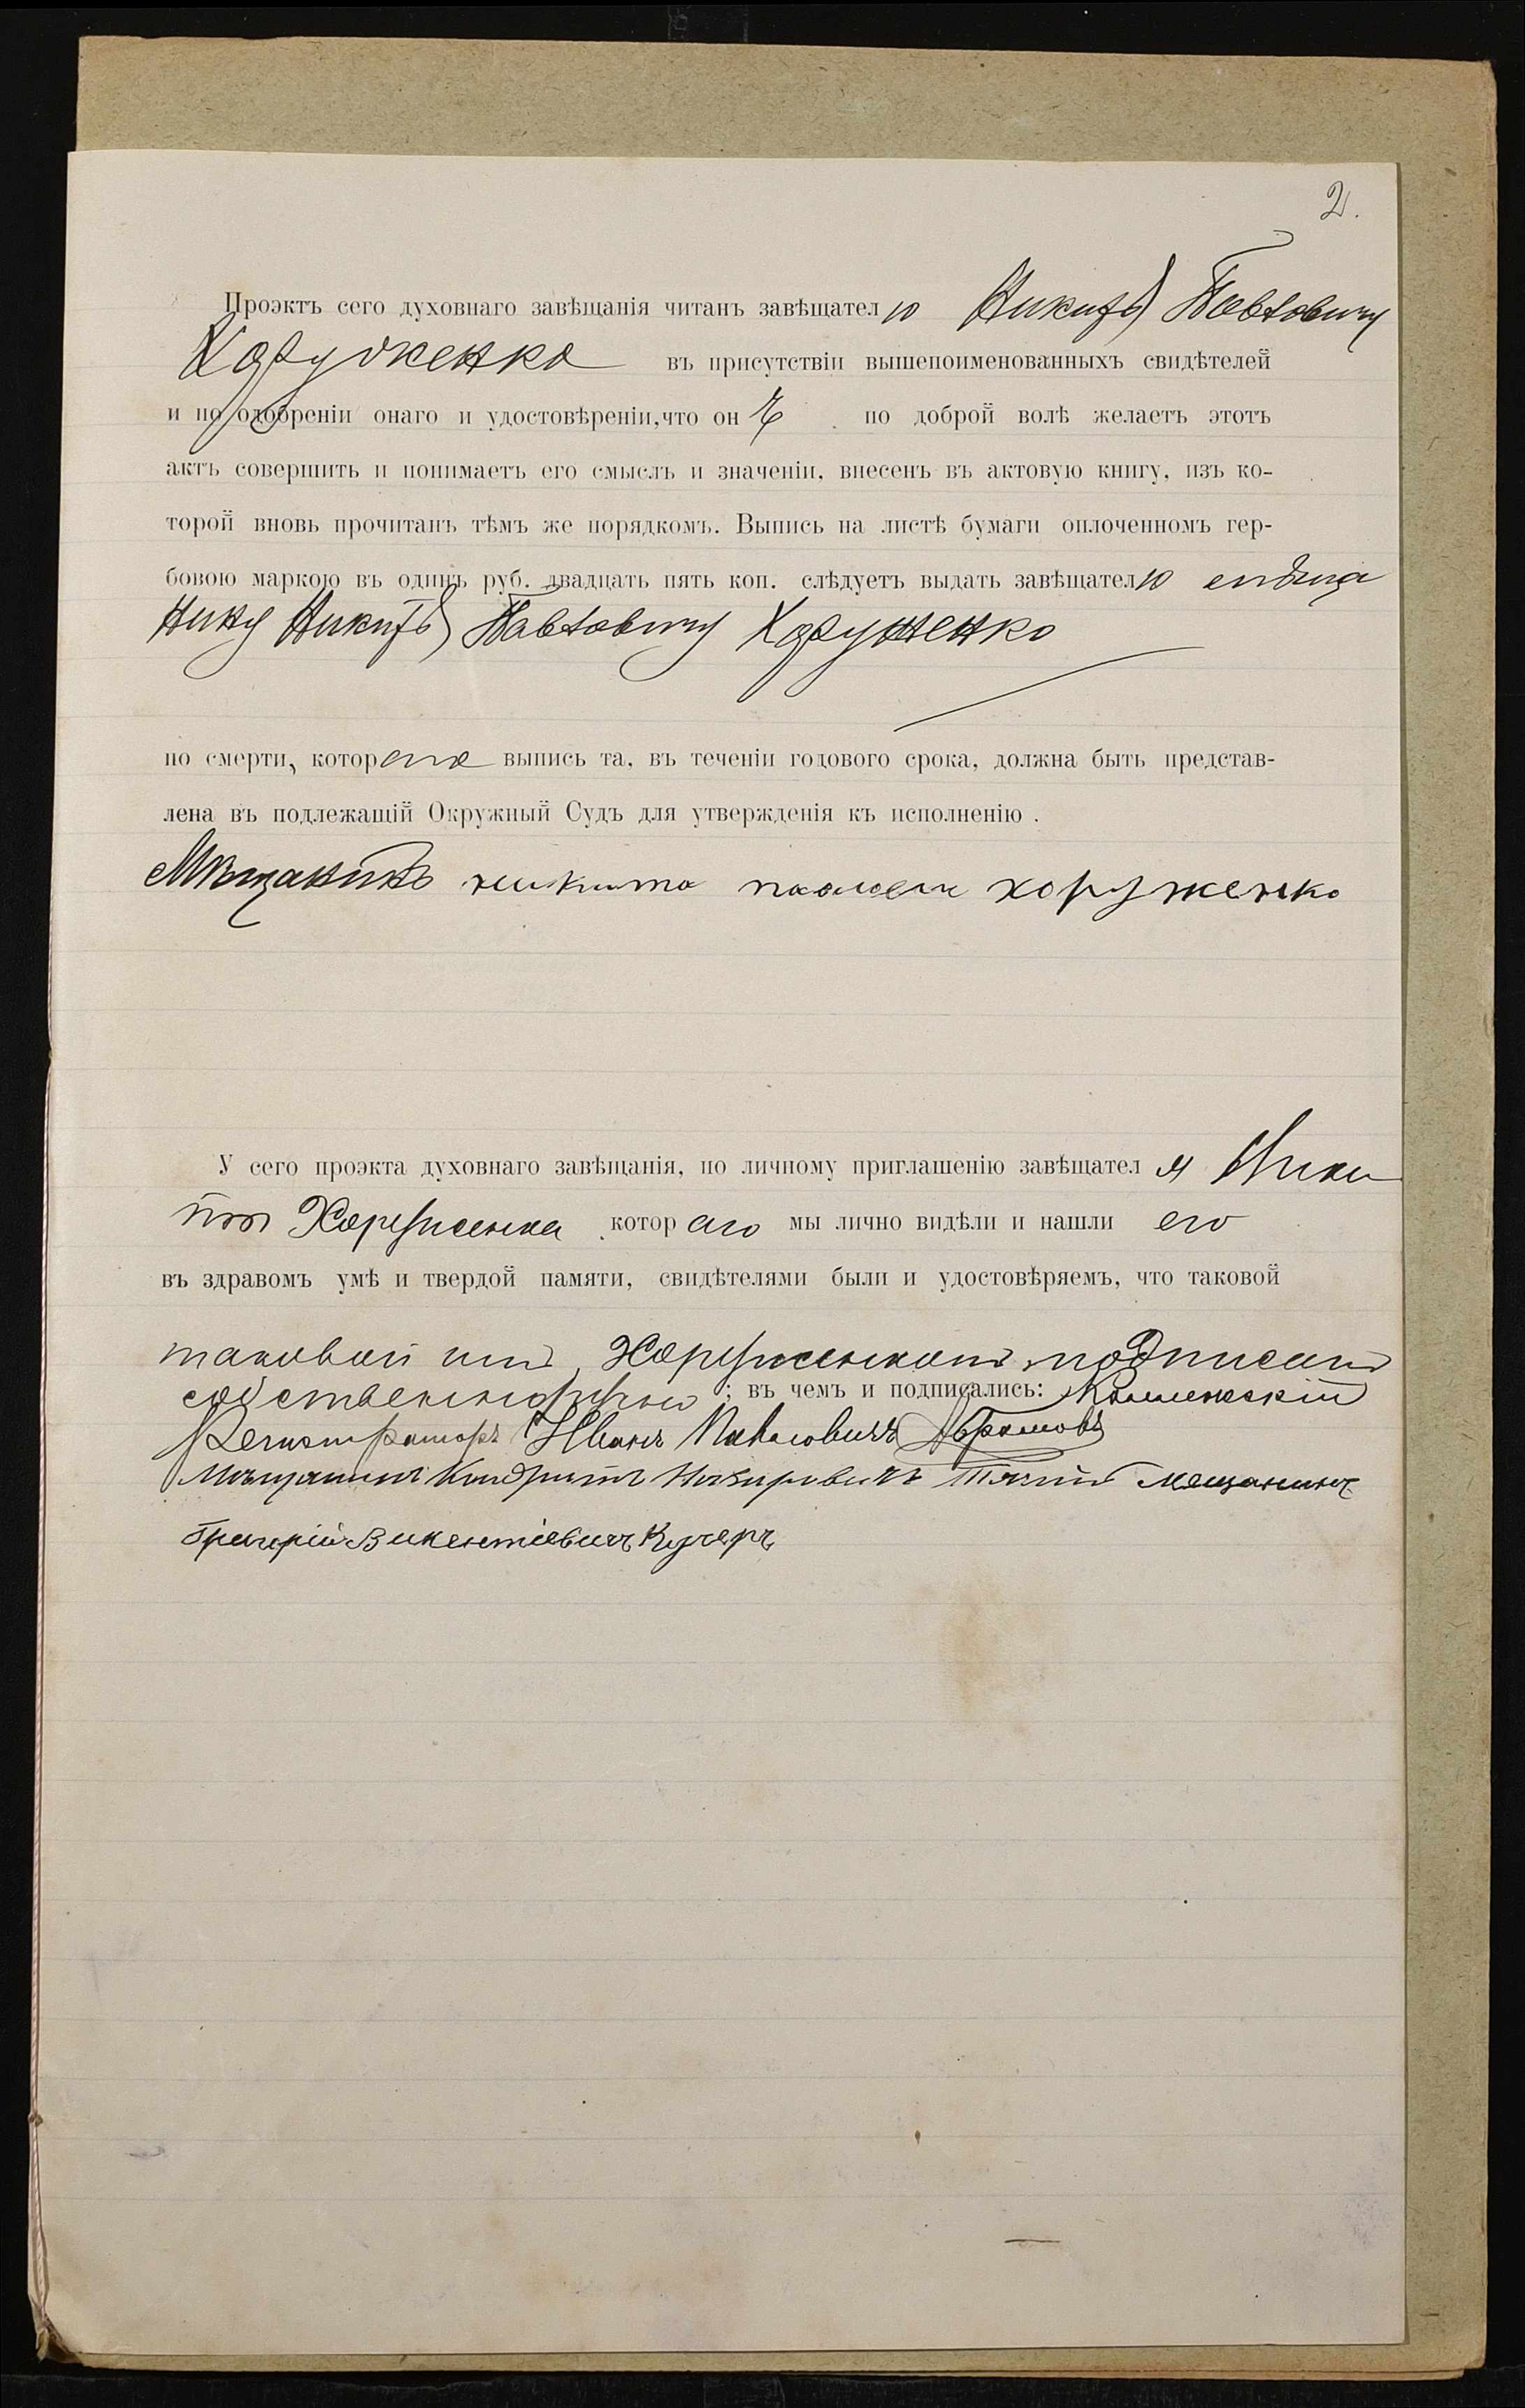 2.
Проэктъ сего духовнаго завѣщанія читанъ завѣщателю Никитѣ Павловичу
Харуженко въ присутствіи вышепоименованныхъ свидѣтелей
и по одобреніи онаго и удостовѣреніи, что онъ по доброй волѣ желаетъ этотъ
актъ совершить и понимаетъ его смыслъ и значеніи, внесенъ въ актовую книгу, изъ ко-
торой вновь прочитанъ тѣмъ же порядкомъ. Выпись на листѣ бумаги оплоченномъ гер-
бовою маркою въ одинъ руб. двадцать пять коп. слѣдуетъ выдать завѣщателю
Никитѣ Павловичу Харуженко
по смерти, котораго выпись та, въ теченіи годового срока, должна быть представ-
лена въ подлежащій Окружный Судъ для утвержденія къ исполненію.
Мѣщанинъ никита хоруженко
У сего проэкта духовнаго завѣщанія, по личному приглашенію завѣщателя Ники
ты Харуженка котораго мы лично видѣли и нашли его
въ здравомъ умѣ и твердой памяти, свидѣтелями были и удостовѣряемъ, что таковой
таковой имъ, Харуженкомъ подписанъ
собственноручно; въ чемъ и подписались:
Регистраторъ Иванъ Павловичъ Абрамовъ
Мѣщанинъ Кондратъ мещанинъ
Григорій Викентіевичъ Кучеръ